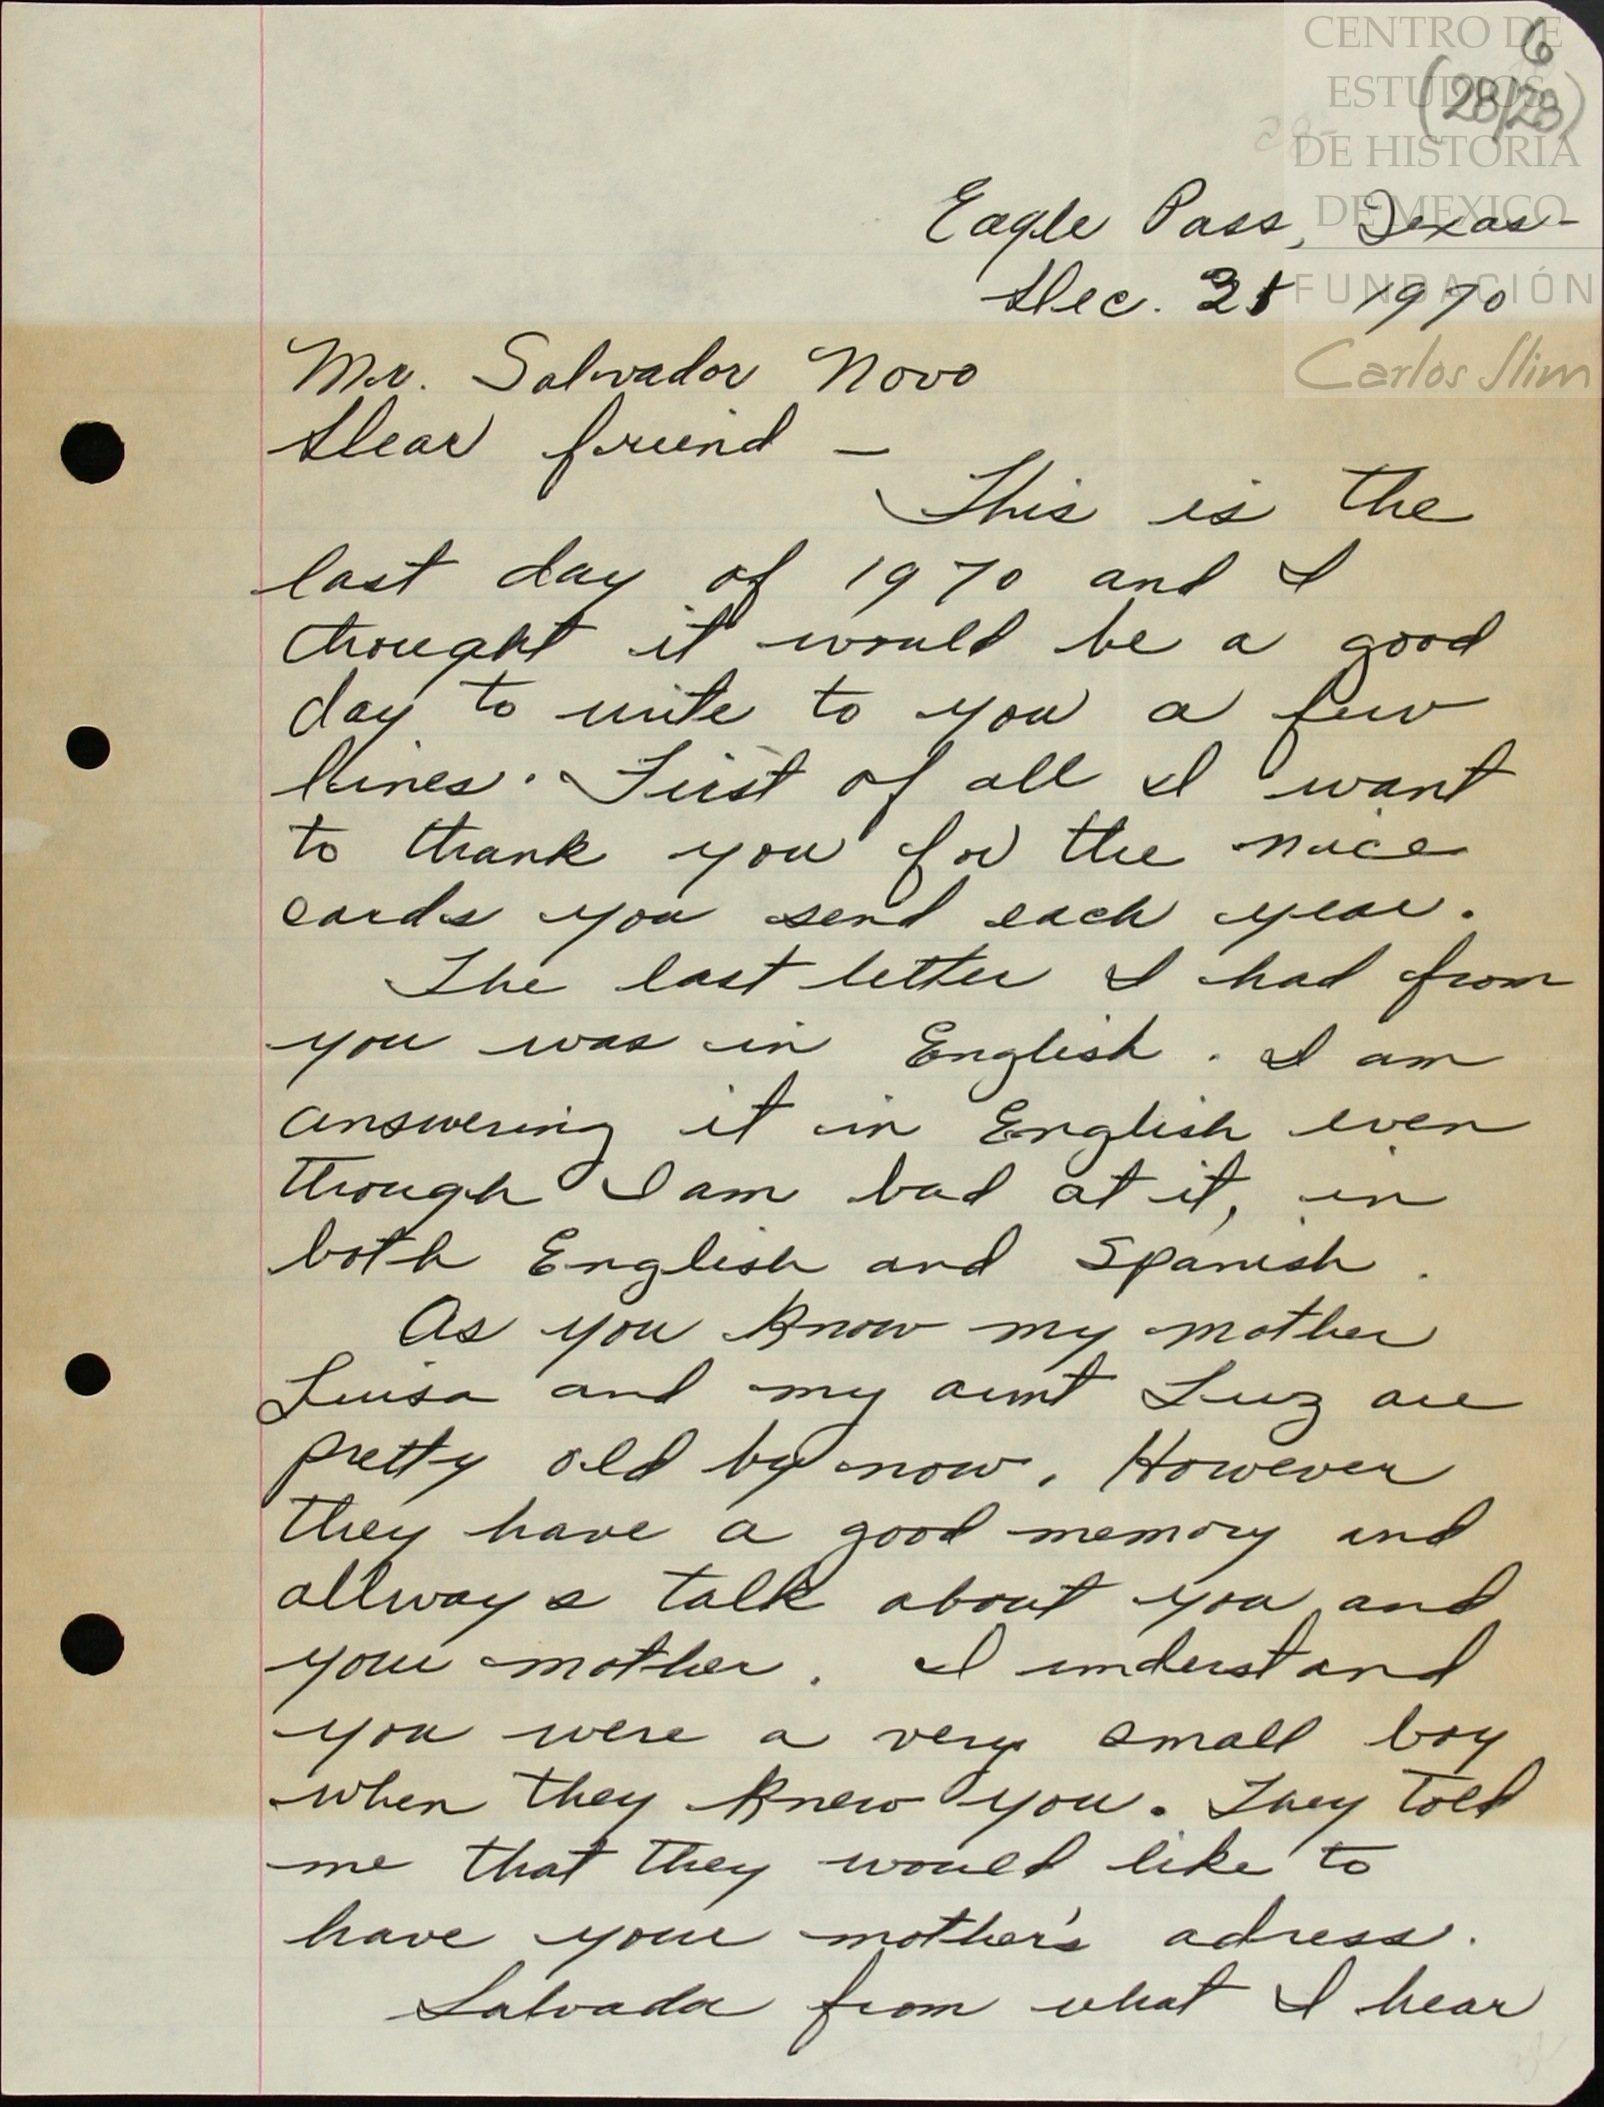 CENTRO DE
ESTUDIOS
DE HISTORIA
DE MEXICO
FUNDACIÓN
Carlos Slim
6
(28/28)
28-
Eagle Pass, Texas-
Dec. 31 1970
Mr. Salvador Novo
Dear friend —
This is the
last day of 1970 and I
thought it would be a good
day to write to you a few
lines. First of all I want
to thank you for the nice
cards you send each year.
The last letter I had from
you was in English. I am
answering it in English even
though I am bad at it, in
both English and Spanish.
As you know my mother
Luisa and my aunt Luz are
pretty old by now. However
they have a good memory and
allways talk about you and
your mother. I understand
you were a very small boy
when they knew you. They told
me that they would like to
have your mother's adress.
Salvador from what I hear